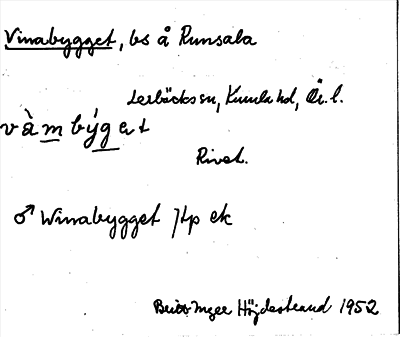 Vinabygget, bs å Runsala
Lerbäcks sn, Kumla hd, Ör. l.
vàmbýget
Rivet.
♂ Winabygget Jtp ek
Britt-Inger Höjdestrand 1952